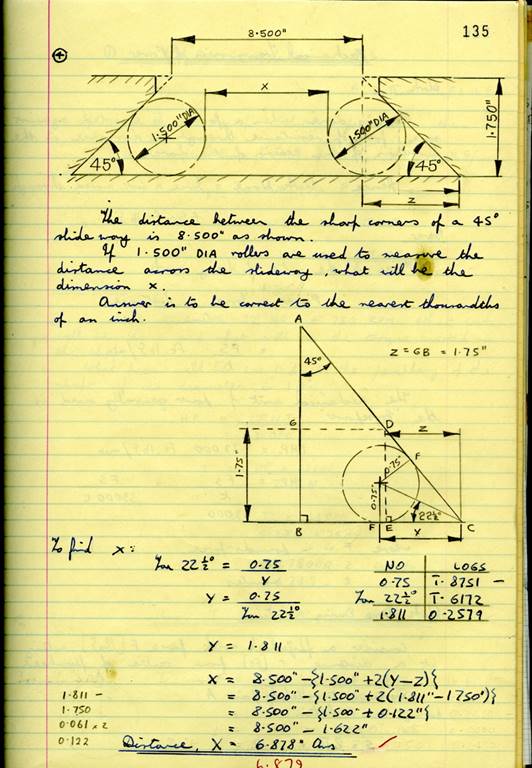 135
④
8.500"
X
1.500" DIA
1.500" DIA
1.750"
45°
45°
Z
The distance between the sharp corners of a 45°
slide way is 8.500" as shown.
If 1.500" DIA rollers are used to measure the
distance across the slideway, what will be the
dimension X.
Answer is to be correct to the nearest thousandths
of an inch.
A
45°
Z = GB = 1.75"
G
D
Z
1.75"
0.75"
F
0.75"
22½°
B
F
E
C
Y
To find X:
Tan 22½° = 0.75 / Y
NO LOGS
0.75 1̄.8751 -
Y = 0.75 / Tan 22½°
Tan 22½° 1̄.6172
1.811 0.2579
Y = 1.811
X = 8.500" - {1.500" + 2(Y-Z)}
1.811 -
= 8.500" - {1.500" + 2(1.811" - 1.750")}
1.750
= 8.500" - {1.500" + 0.122"}
0.061 x 2
= 8.500" - 1.622"
0.122
Distance, X = 6.878" Ans ✓
6.879